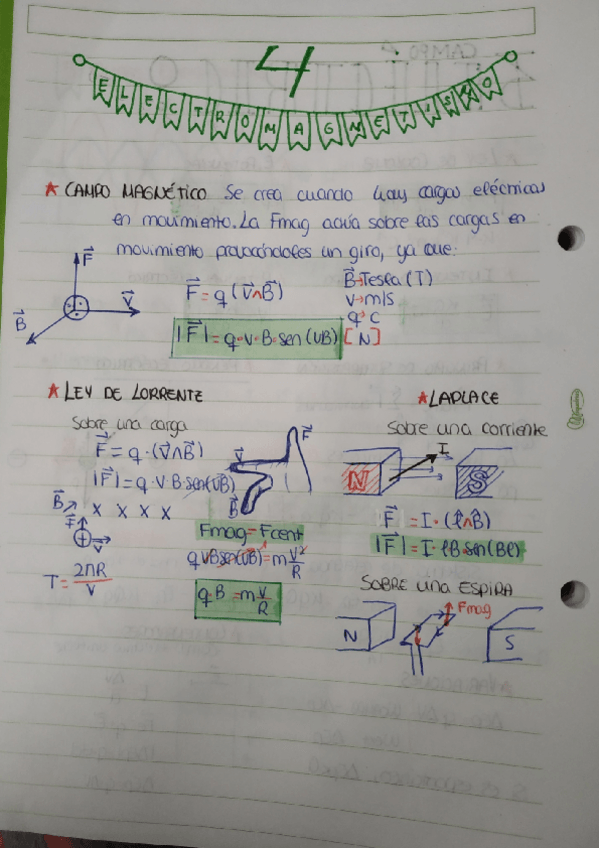 4
ELECTROMAGNETISMO
★ CAMPO MAGNÉTICO Se crea cuando hay cargas eléctricas
en movimiento. La Fmag actúa sobre las cargas en
movimiento provocándoles un giro, ya que:
F⃗
B⃗
V⃗
F⃗ = q (V⃗∧B⃗)
|F⃗| = q·v·B·sen(vB) [N]
B⃗→Tesla (T)
v→m/s
q→C
★ LEY DE LORRENTE
Sobre una carga
F⃗ = q·(V⃗∧B⃗)
|F⃗| = q·V·B·sen(vB)
B⃗ x x x x
F⃗
v
T = 2πR/v
V⃗
F⃗
B⃗
Fmag = Fcent
qvBsen(vB) = m v²/R
q·B = m v/R
★ LAPLACE
Sobre una corriente
N
I
S
F⃗ = I·(l⃗∧B⃗)
|F⃗| = I·lB sen(Bl)
SOBRE UNA ESPIRA
N
Fmag
S